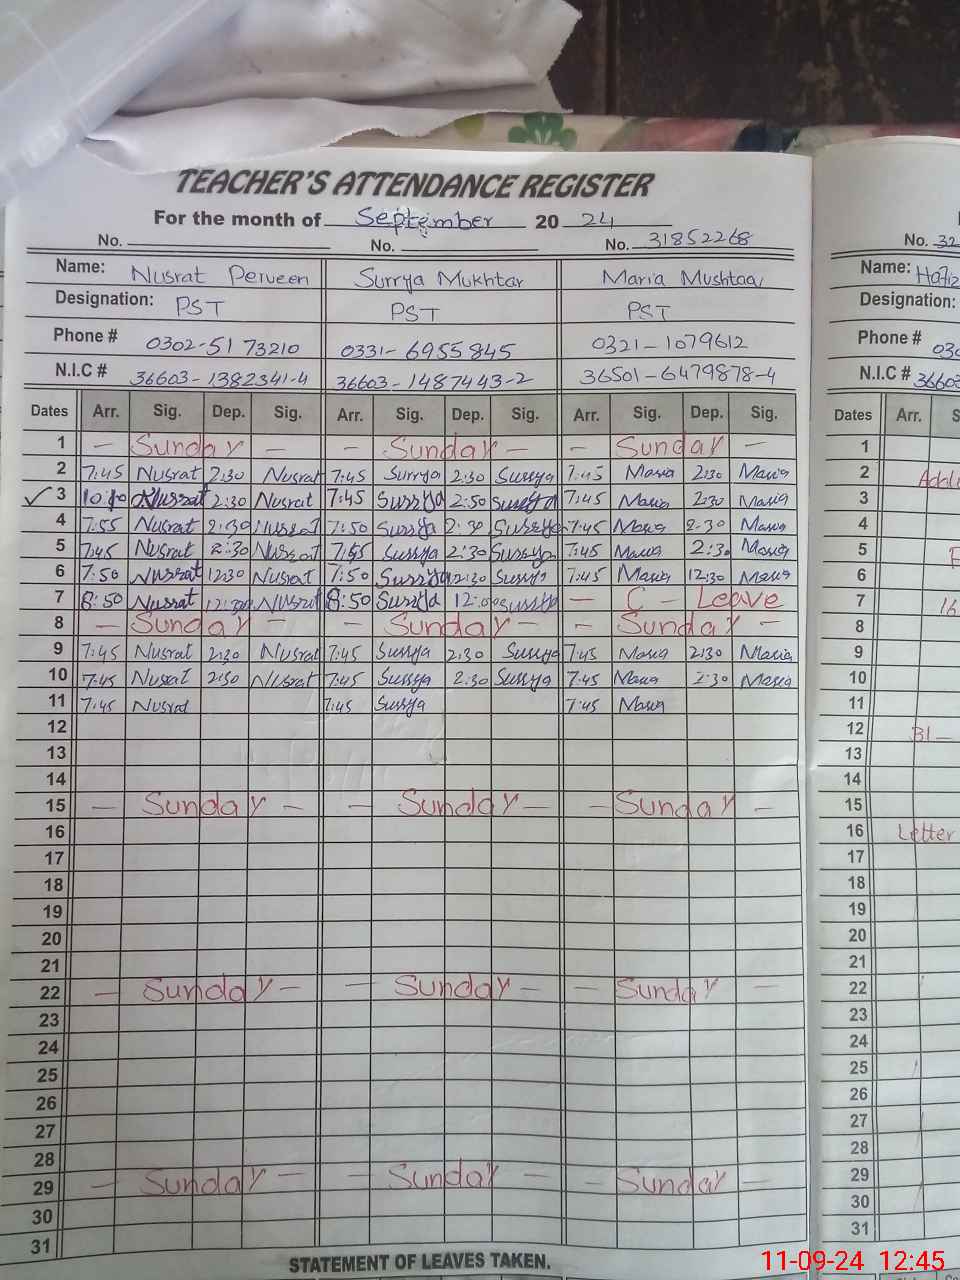 TEACHER'S ATTENDANCE REGISTER
For the month of September 20 24
No. No. No. 31852268 No. 32
Name: Nusrat Perveen Surrya Mukhtar Maria Mushtaq Name: Hafiz
Designation: PST PST PST Designation:
Phone # 0302-5173210 0331-6955845 0321-1079612 Phone # 030
N.I.C # 36603-1382341-4 36603-1487443-2 36501-6479878-4 N.I.C # 36603
Dates Arr. Sig. Dep. Sig. Arr. Sig. Dep. Sig. Arr. Sig. Dep. Sig. Dates Arr. S
1 - Sunday - - Sunday - - Sunday - 1
2 7:45 Nusrat 2:30 Nusrat 7:45 Surrya 2:30 Surrya 7:45 Maria 2:30 Maria 2
3 Nusrat 2:30 Nusrat 7:45 Surrya 2:50 Surrya 7:45 Maria 2:30 Maria 3
4 7:55 Nusrat 2:30 Nusrat 7:50 Surrya 2:30 Surrya 7:45 Maria 2:30 Maria 4
5 7:45 Nusrat 2:30 Nusrat 7:55 Surrya 2:30 Surrya 7:45 Maria 2:30 Maria 5
6 7:50 Nusrat 12:30 Nusrat 7:50 Surrya 12:30 Surrya 7:45 Maria 12:30 Maria 6
7 8:50 Nusrat Nusrat 8:50 Surrya 12:00 Surrya - C - Leave 7 16
8 - Sunday - - Sunday - - Sunday - 8
9 7:45 Nusrat 2:30 Nusrat 7:45 Surrya 2:30 Surrya 7:45 Maria 2:30 Maria 9
10 7:45 Nusrat 2:30 Nusrat 7:45 Surrya 2:30 Surrya 7:45 Maria 2:30 Maria 10
11 7:45 Nusrat 7:45 Surrya 7:45 Maria 11
12 12 31-
13 13
14 14
15 - Sunday - - Sunday - - Sunday - 15
16 16 Letter
17 17
18 18
19 19
20 20
21 21
22 - Sunday - - Sunday - - Sunday - 22
23 23
24 24
25 25
26 26
27 27
28 28
29 - Sunday - - Sunday - - Sunday - 29
30 30
31 31
STATEMENT OF LEAVES TAKEN.
11-09-24 12:45